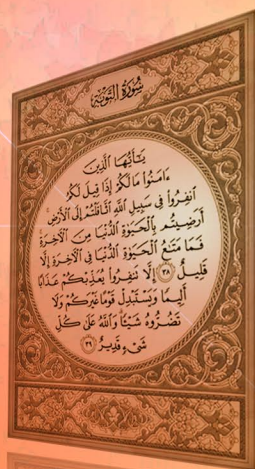 سُورَةُ التَّوْبَةِ
يَٰٓأَيُّهَا الَّذِينَ
ءَامَنُوا مَا لَكُمْ إِذَا قِيلَ لَكُمُ
انفِرُوا فِي سَبِيلِ اللَّهِ اثَّاقَلْتُمْ إِلَى الْأَرْضِ
أَرَضِيتُم بِالْحَيَوٰةِ الدُّنْيَا مِنَ الْآخِرَةِ
فَمَا مَتَٰعُ الْحَيَوٰةِ الدُّنْيَا فِي الْآخِرَةِ إِلَّا
قَلِيلٌ ٣٨ إِلَّا تَنفِرُوا يُعَذِّبْكُمْ عَذَابًا
أَلِيمًا وَيَسْتَبْدِلْ قَوْمًا غَيْرَكُمْ وَلَا
تَضُرُّوهُ شَيْـًٔا وَاللَّهُ عَلَىٰ كُلِّ
شَيْءٍ قَدِيرٌ ٣٩